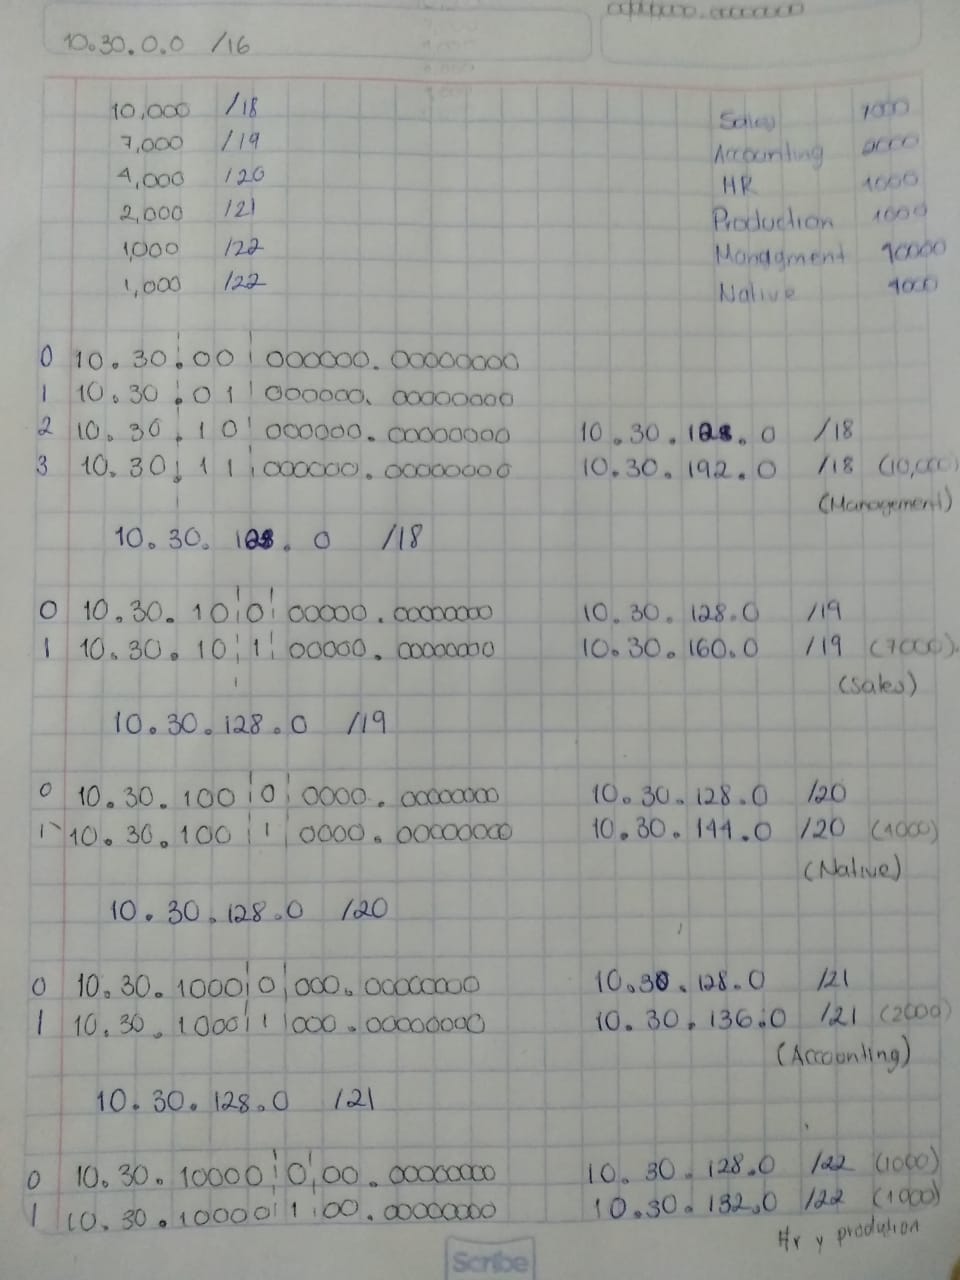 10.30.0.0 /16
10,000 /18
7,000 /19
4,000 /20
2,000 /21
1,000 /22
1,000 /22
Sales 7000
Accounting 2000
HR 1000
Production 1000
Managment 10000
Native 4000
0 10.30.00 000000.00000000
1 10.30.01 000000.00000000
2 10.30.10 000000.00000000 10.30.128.0 /18
3 10.30.11 000000.00000000 10.30.192.0 /18 (10,000)
(Management)
10.30.128.0 /18
0 10.30.10 0 00000.00000000 10.30.128.0 /19
1 10.30.10 1 00000.00000000 10.30.160.0 /19 (7000)
(Sales)
10.30.128.0 /19
0 10.30.100 0 0000.00000000 10.30.128.0 /20
1 10.30.100 1 0000.00000000 10.30.144.0 /20 (4000)
(Native)
10.30.128.0 /20
0 10.30.1000 0 000.00000000 10.30.128.0 /21
1 10.30.1000 1 000.00000000 10.30.136.0 /21 (2000)
(Accounting)
10.30.128.0 /21
0 10.30.10000 0 00.00000000 10.30.128.0 /22 (1000)
1 10.30.10000 1 00.00000000 10.30.132.0 /22 (1000)
Hr y prodution
Scribe